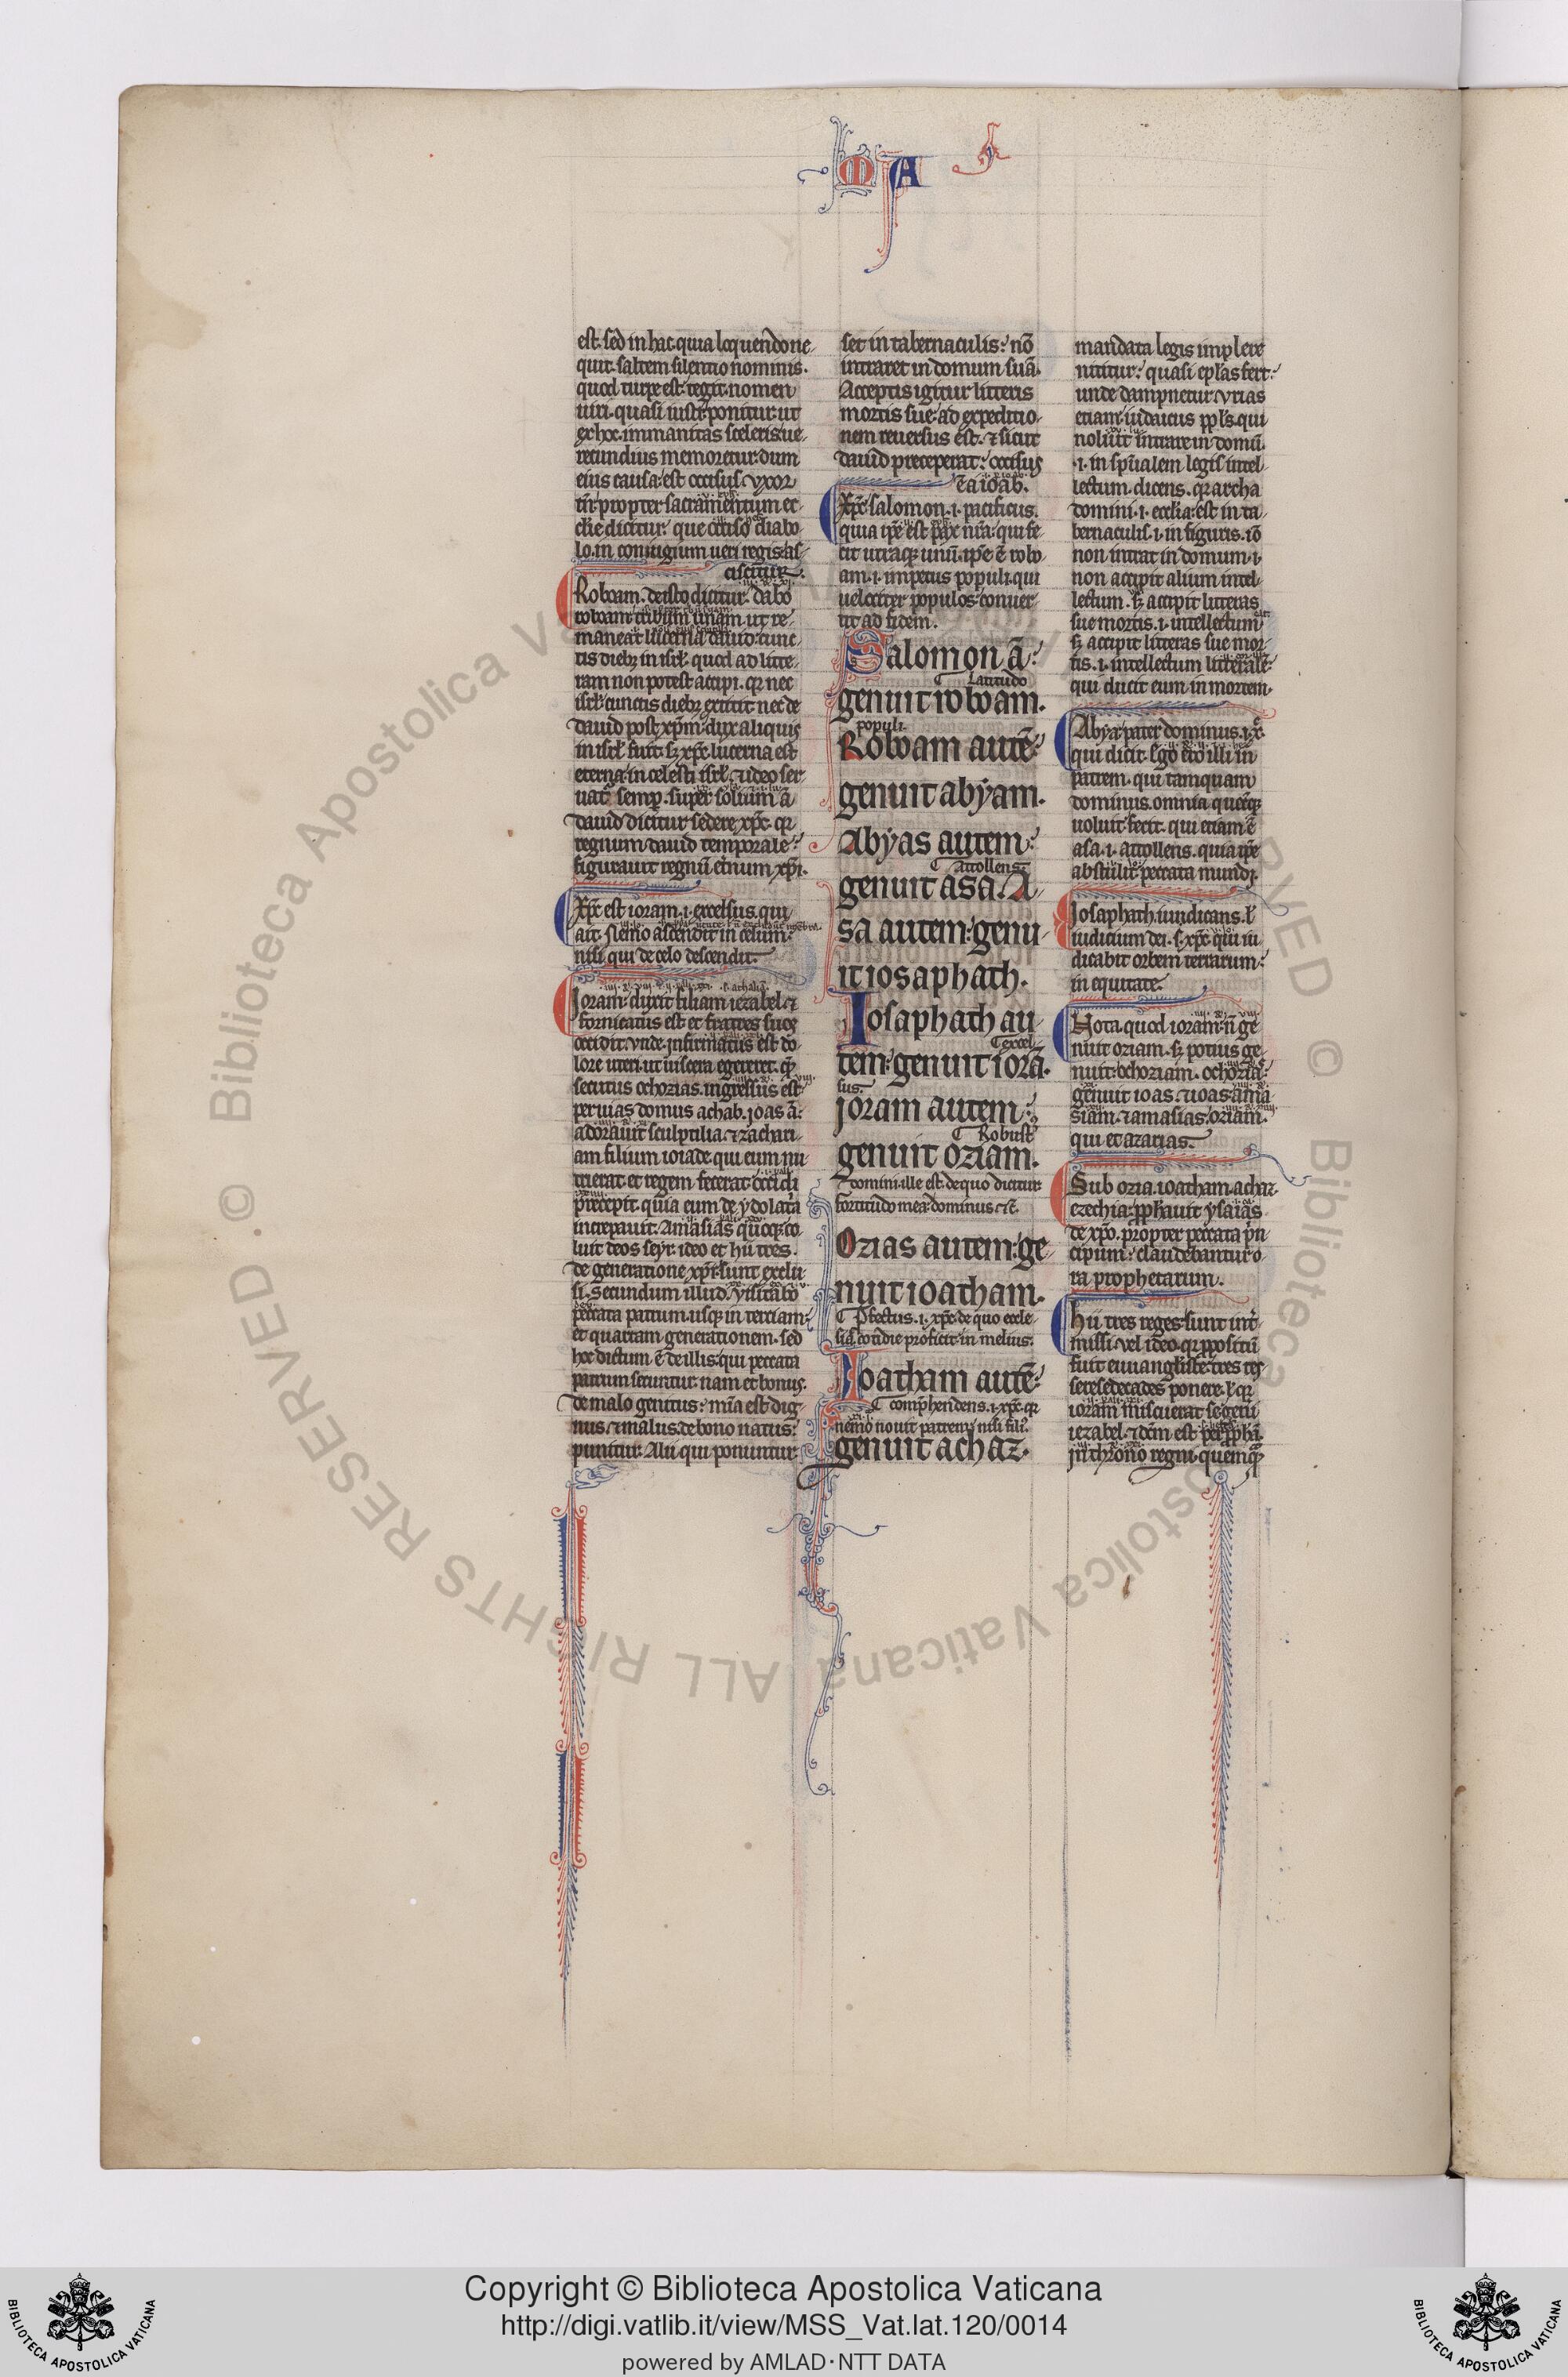 MA
est. sed in hac. quia loquendo ne
quit. saltem silentio nominis.
quod turpe est. tegit. nomen
uiri. quasi iusti ponitur. ut
ex hoc. immanitas sceleris. ue
recundius memoretur. dum
eius causa. est occisus. vxor
tñ propter sacramentum ec
clesie dicitur. que occiso diabo
lo. in coniugium ueri regis as
ciscitur.
Roboam. de isto dicitur. dabo
roboam tribum unam. ut re
maneat lucerna dauid. cunc
tis diebȝ in isrł. quod ad litte
ram non potest accipi. qr nec
isrł cunctis diebȝ extitit nec de
dauid post xp̄m. dux aliquis
in isrł fuit. sȝ xp̄c lucerna est
eterna. in celesti isrł. ideo ser
uatᷣ semp̲. super solium ā
dauid dicitur sedere xp̄c. qr
regnum dauid temporale
figurauit regnū et̄num xp̄i.
Xp̄c est ioram. i. excelsus. qui
ait. Nemo ascendit in celum
nisi. qui de celo descendit.
Joram. duxit filiam iezabel. ⁊
fornicatus est et fratres suos
occidit. vnde infirmatus est do
lore uteri. ut uiscera egereret. quē
secutus ochozias. ingressus est
per uias domus achab. joas ā
adorauit sculptilia. ⁊ zachari
am filium ioiade. qui eum nu
trierat et regem fecerat occidi
precepit. quia eum de ydolatria
increpauit. Amasias quoqȝ co
luit deos seyr. ideo et hii tres.
de generatione xp̄i. sunt exclu
si. Secundum illud. visitabo
peccata patrum. usqȝ in tertiam
et quartam generationem. sed
hoc dictum ē de illis. qui peccata
patrum secuntur. nam et bonus.
de malo genitus. mīa est dig
nus. ⁊ malus. de bono natus.
punitur. Alii qui ponuntur
set in tabernaculis. nō
intraret in domum suā.
Acceptis igitur litteris
mortis sue. ad expeditio
nem reuersus est. ⁊ sicut
dauid preceperat. occisus
Xp̄c salomon. i. pacificus.
quia ip̄e est pax nr̄a. qui fe
cit utraqȝ unū. ip̄e ē robo
am. i. impetus populi. qui
uelociter populos conuer
tit ad fidem.
Salomon ā
Latitudo
genuit roboam.
populi.
Roboam autē
genuit abyam.
Abyas autem
Attollens
genuit asa. A
sa autem genu
it iosaphath.
Iosaphath au
excel
tem genuit iorā.
sus.
joram autem
Robust
genuit oziam.
domini. ille est. de quo dicitur
fortitudo mea dominus. ⁊c̄.
Ozias autem ge
nuit ioatham.
Pfectus. i. xp̄c. de quo eccle
sia cotidie proficit. in melius.
Ioatham autē
comp̄hendens. i. xp̄c. qr
nemo nouit patrem. nisi filiꝰ.
genuit achaz.
mandata legis implere
nititur. quasi epłas fert.
unde dampnetur. vrias
etiam. iudaicus ppłs. qui
noluit intrare in domū.
.i. in sp̄ualem legis intel
lectum. dicens. qr archa
domini. i. ecclia. est in ta
bernaculis. i. in figuris. iō
non intrat in domum. i.
non accipit alium intel
lectum. sȝ accipit litteras
sue mortis. i. intellectum
sȝ accipit litteras sue mor
tis. i. intellectum litterale
qui ducit eum in mortem.
Abya. pater dominus. i. xp̄c
qui dicit. Ego ero illi in
patrem. qui tamquam
dominus. omnia quecūqȝ
uoluit fecit. qui etiam ē
asa. i. attollens. quia ip̄e
abstulit peccata mundi.
Josaphath. iudicans. ł
iudicium dei. s. xp̄c. qui iu
dicabit orbem terrarum
in equitate.
Nota. quod ioram. ñ ge
nuit oziam. sȝ potius ge
nuit. ochoziam. ochozias
genuit ioas. ⁊ ioas. ama
siam. ⁊ amasias. oziam.
qui et azarias.
Sub ozia. ioatham. achaz.
ezechia. pphauit ysaias
de xp̄o. propter peccata p̄n
cipum. claudebantur o
ra prophetarum.
hii tres reges sunt int̄
missi. vel ideo. qr ppositū
fuit euuangliste. tres tes
seresedecades ponere. ł qr
ioram miscuerat se geni
iezabel. ⁊ dc̄m est per pph̄m.
jn throno regni. quemqȝ
Copyright © Biblioteca Apostolica Vaticana
http://digi.vatlib.it/view/MSS_Vat.lat.120/0014
powered by AMLAD·NTT DATA
BIBLIOTECA APOSTOLICA VATICANA
BIBLIOTECA APOSTOLICA VATICANA
Biblioteca Apostolica Vaticana ALL RIGHTS RESERVED. ©